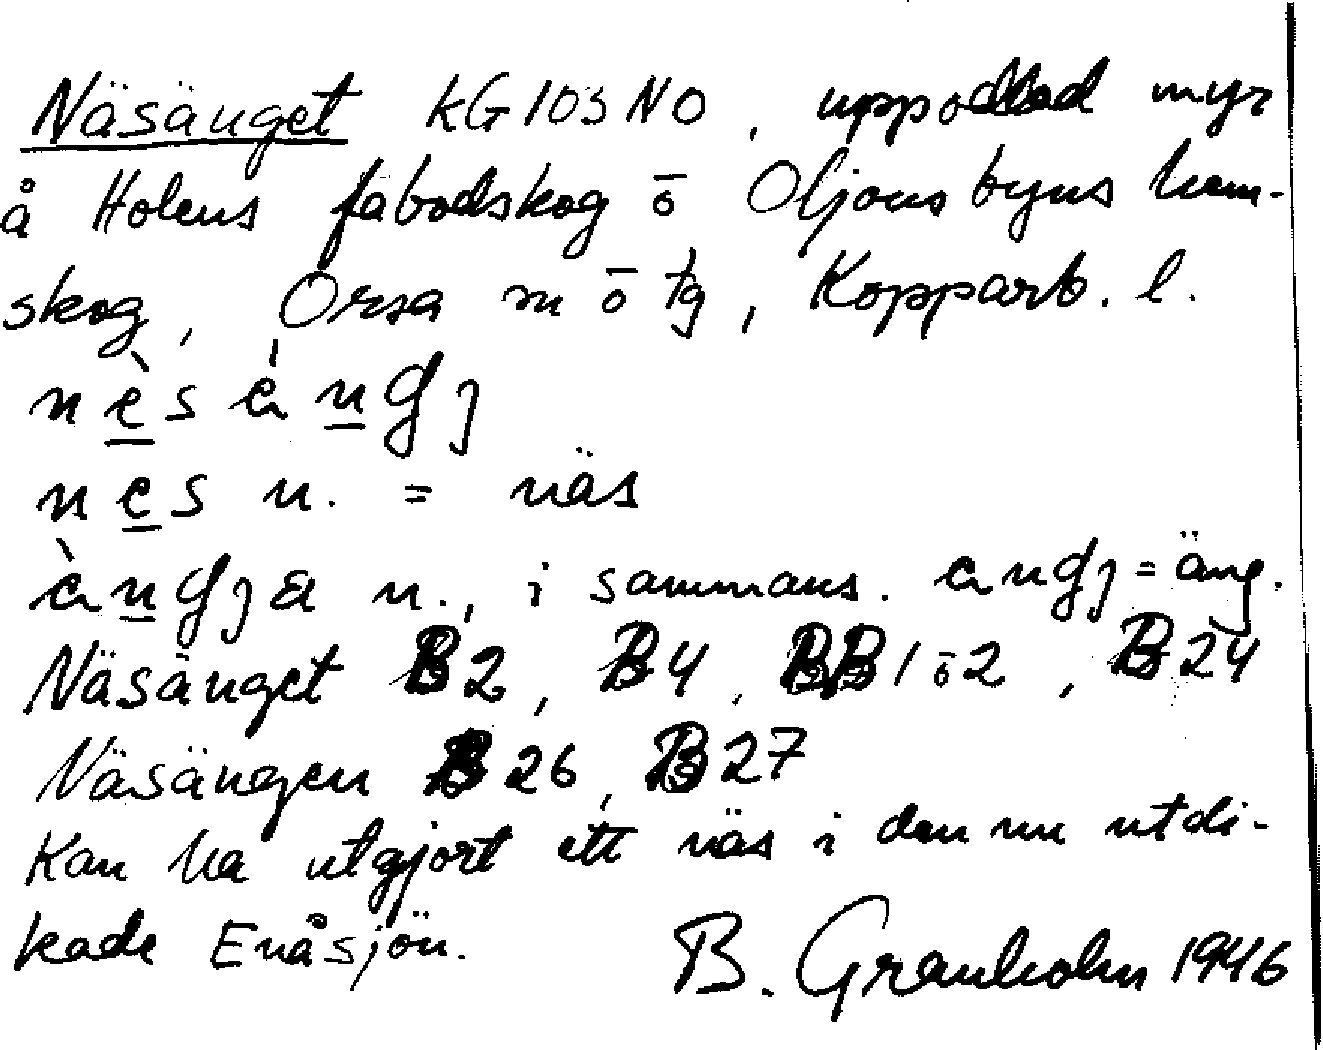 Näsänget KG 103 NO, uppodlad myr
å Holens fäbodskog ō Oljonsbyns hem-
skog, Orsa sn ō tg, Kopparb. l.
nès ängj
nes n. = näs
ängja n., i sammans. ängj = äng.
Näsänget B2, B4, BB1 ō 2, B24
Näsängen B26, B27
Kan ha utgjort ett näs i den nu utdi-
kade Enåsjön. B. Granholm 1946